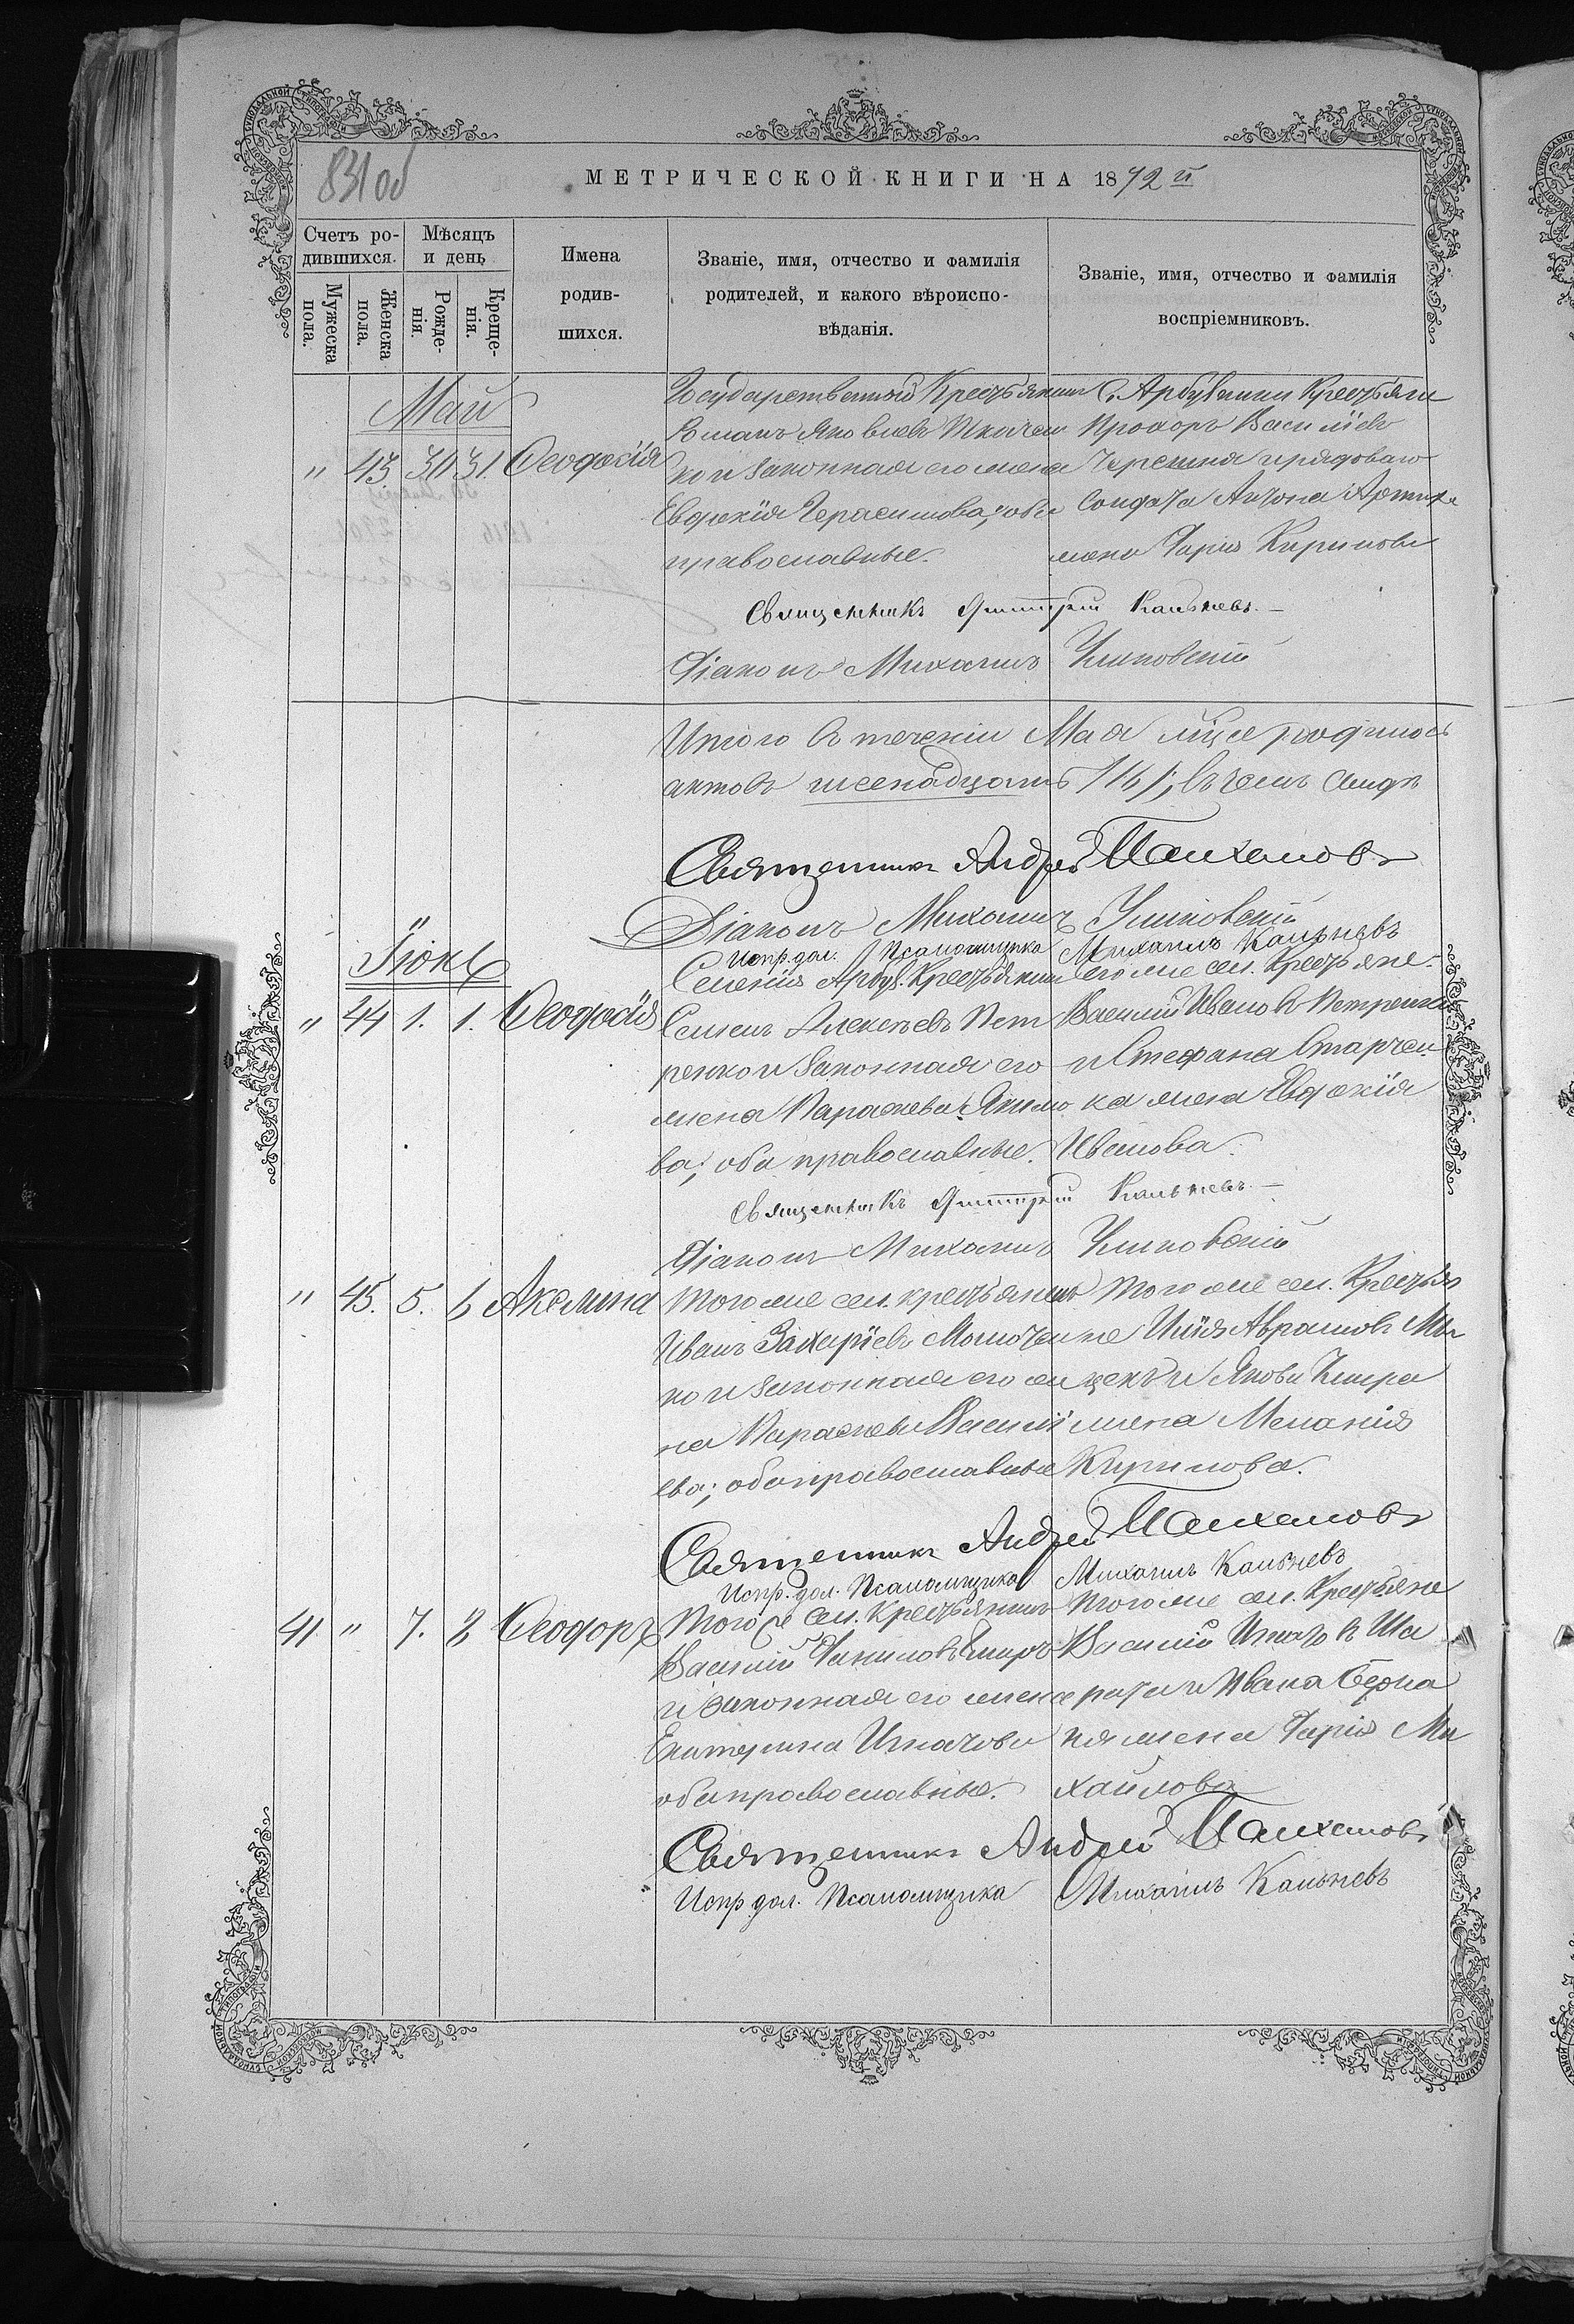 831 об
МЕТРИЧЕСКОЙ КНИГИ НА 1872 й
Счетъ ро-
дившихся.
Мужеска
пола.
Женска
пола.
Мѣсяцъ
и день
Рожде-
нія.
Креще-
нія.
Имена
родив-
шихся.
Званіе, имя, отчество и фамилія
родителей, и какого вѣроиспо-
вѣданія.
Званіе, имя, отчество и фамилія
воспріемниковъ.
Май
" 43 30 31. Ѳеодосія
Государственный Крестьянин
Романъ Яковлевъ Ткачен
ко и законная его жена
Евдокія Герасимова, оба
православные.
С. Арбузинки Крестьяни
Прохоръ Василіевъ
и рядоваго
Солдата Антона
жена Дарія Кирилова
Священникъ Димитрій Кальневъ.
Діаконъ Михаилъ Улиновскій
Итого въ теченіи Мая мцѣ родилось
актовъ шеснадцать /16/; въ чемъ свидѣ
Священникъ Андрей
Діаконъ Михаилъ Улиновскій
Испр. дол. Псаломщика Михаилъ Кальневъ
Іюнь
" 44 1. 1. Ѳеодосія
Селенія Арбуз. Крестьянин
Семенъ Алексѣевъ Пет
ренко и законная его
жена Параскева Якимо
ва; оба православные.
того же сел. Крестьяне
Василій Ивановъ Петренко
и Стефана Старчен
ка жена Евдокія
Иванова.
Священникъ Димитрій Кальневъ.
Діаконъ Михаилъ Улиновскій
" 45. 5. 6 Акилина
Того же сел. крестьянинъ
Иванъ Захаріевъ
ко и законная его же
на Параскева Василі
ева; оба православные
Того же сел. Крестья
не Илія Аврамовъ
и Якова
жена Меланія
Кирилова.
Священникъ Андрей
Испр. дол. Псаломщика Михаилъ Кальневъ
41 " 7. 8 Ѳеодоръ
Того же сел. Крестьянинъ
Василій Даниловъ
и законная его жена
Екатерина Игнатова
оба православные.
Того же сел. Крестьяне
Василій Игнатовъ Ша
рата и Ивана
жена Дарія Ми
хайлова
Священникъ Андрей
Испр дол. Псаломщика Михаилъ Кальневъ